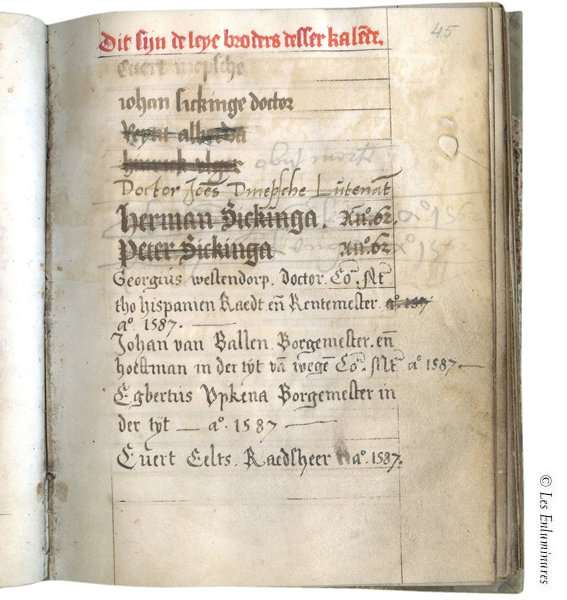 45
Dit sijn de leye broders desser kalēde.
Evert mepsche
iohan sickinge doctor
Reynt alberda
hinrick elger
obijt morte
Doctor Joēs Dmepsche Lutenāt
herman Sickinga. Aº. 62.
Peter Sickinga Aº. 62
Georgius westendorp. doctor. Co. Mt
tho hispanien Raedt eñ Rentemester. aº. 157
aº. 1587.
Johan van Ballen. Borgemester. eñ
hoeftman in der tyt vā wegē Co. Mt aº 1587
Egbertus Vpkena Borgemester in
der tyt — aº. 1587 —
Evert Eelts. Raedsheer aº. 1587.
© Les Enluminures